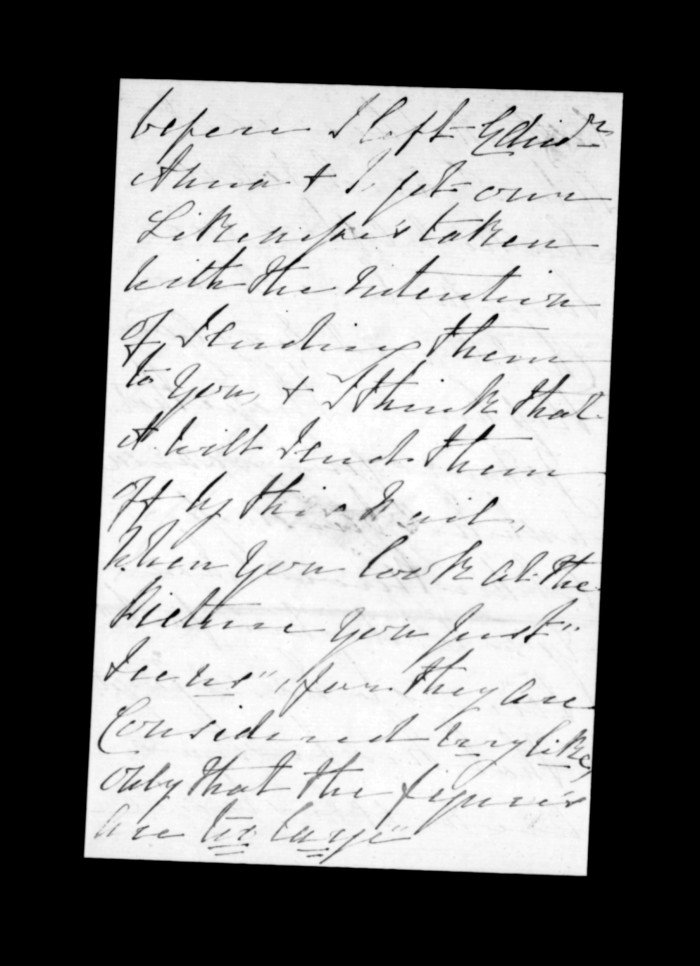 before I left Edinr
Anna & I got our
Likenesses taken
with the intention
of sending them
to you, & I think that
I will send them
off by this Mail,
When you look at the
Picture you just "
See us", for they are
Considered very like,
only that the figures
are too large"